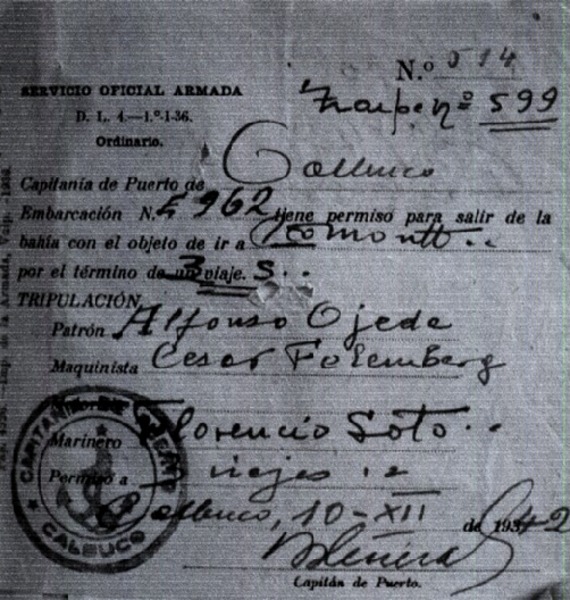 N.º 514
SERVICIO OFICIAL ARMADA
Zarpe nº 599
D. L. 4.—1.º-1-36.
Ordinario.
Capitanía de Puerto de Calbuco
Embarcación N.º 962 tiene permiso para salir de la
bahía con el objeto de ir a Pto montt..
por el término de 3 viaje. s..
TRIPULACIÓN
Patrón Alfonso Ojeda
Maquinista Cesar
Marinero Florencio Soto..
Permiso a viajes
Calbuco, 10-XII de 1942
Capitán de Puerto.
CAPITANIA DE PUERTO
CALBUCO